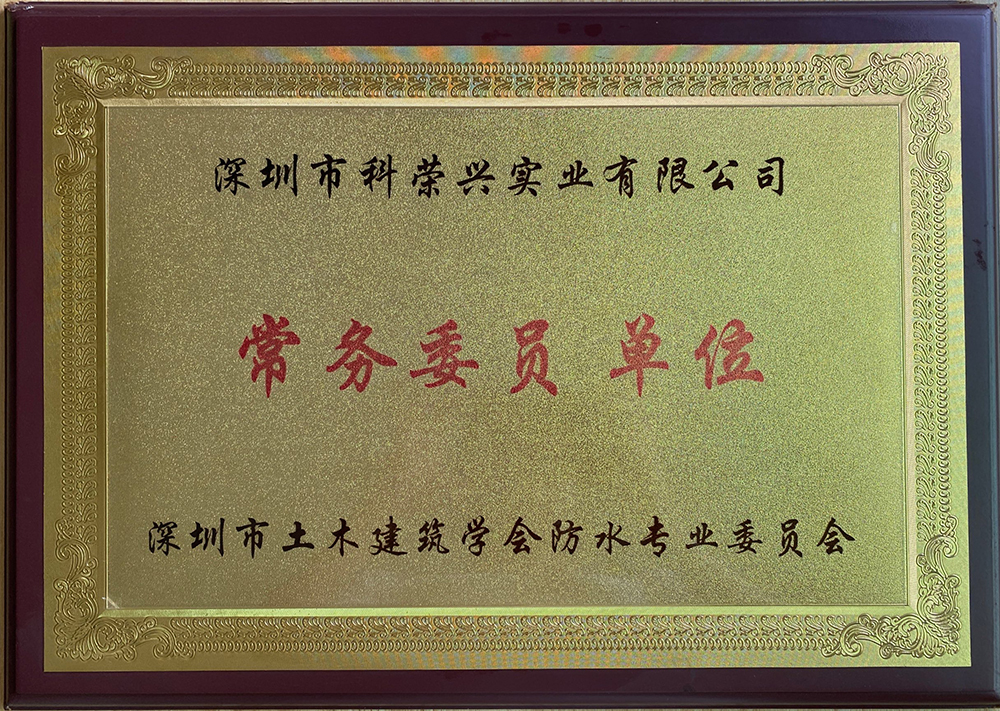 深圳市科荣兴实业有限公司
常务委员单位
深圳市土木建筑学会防水专业委员会